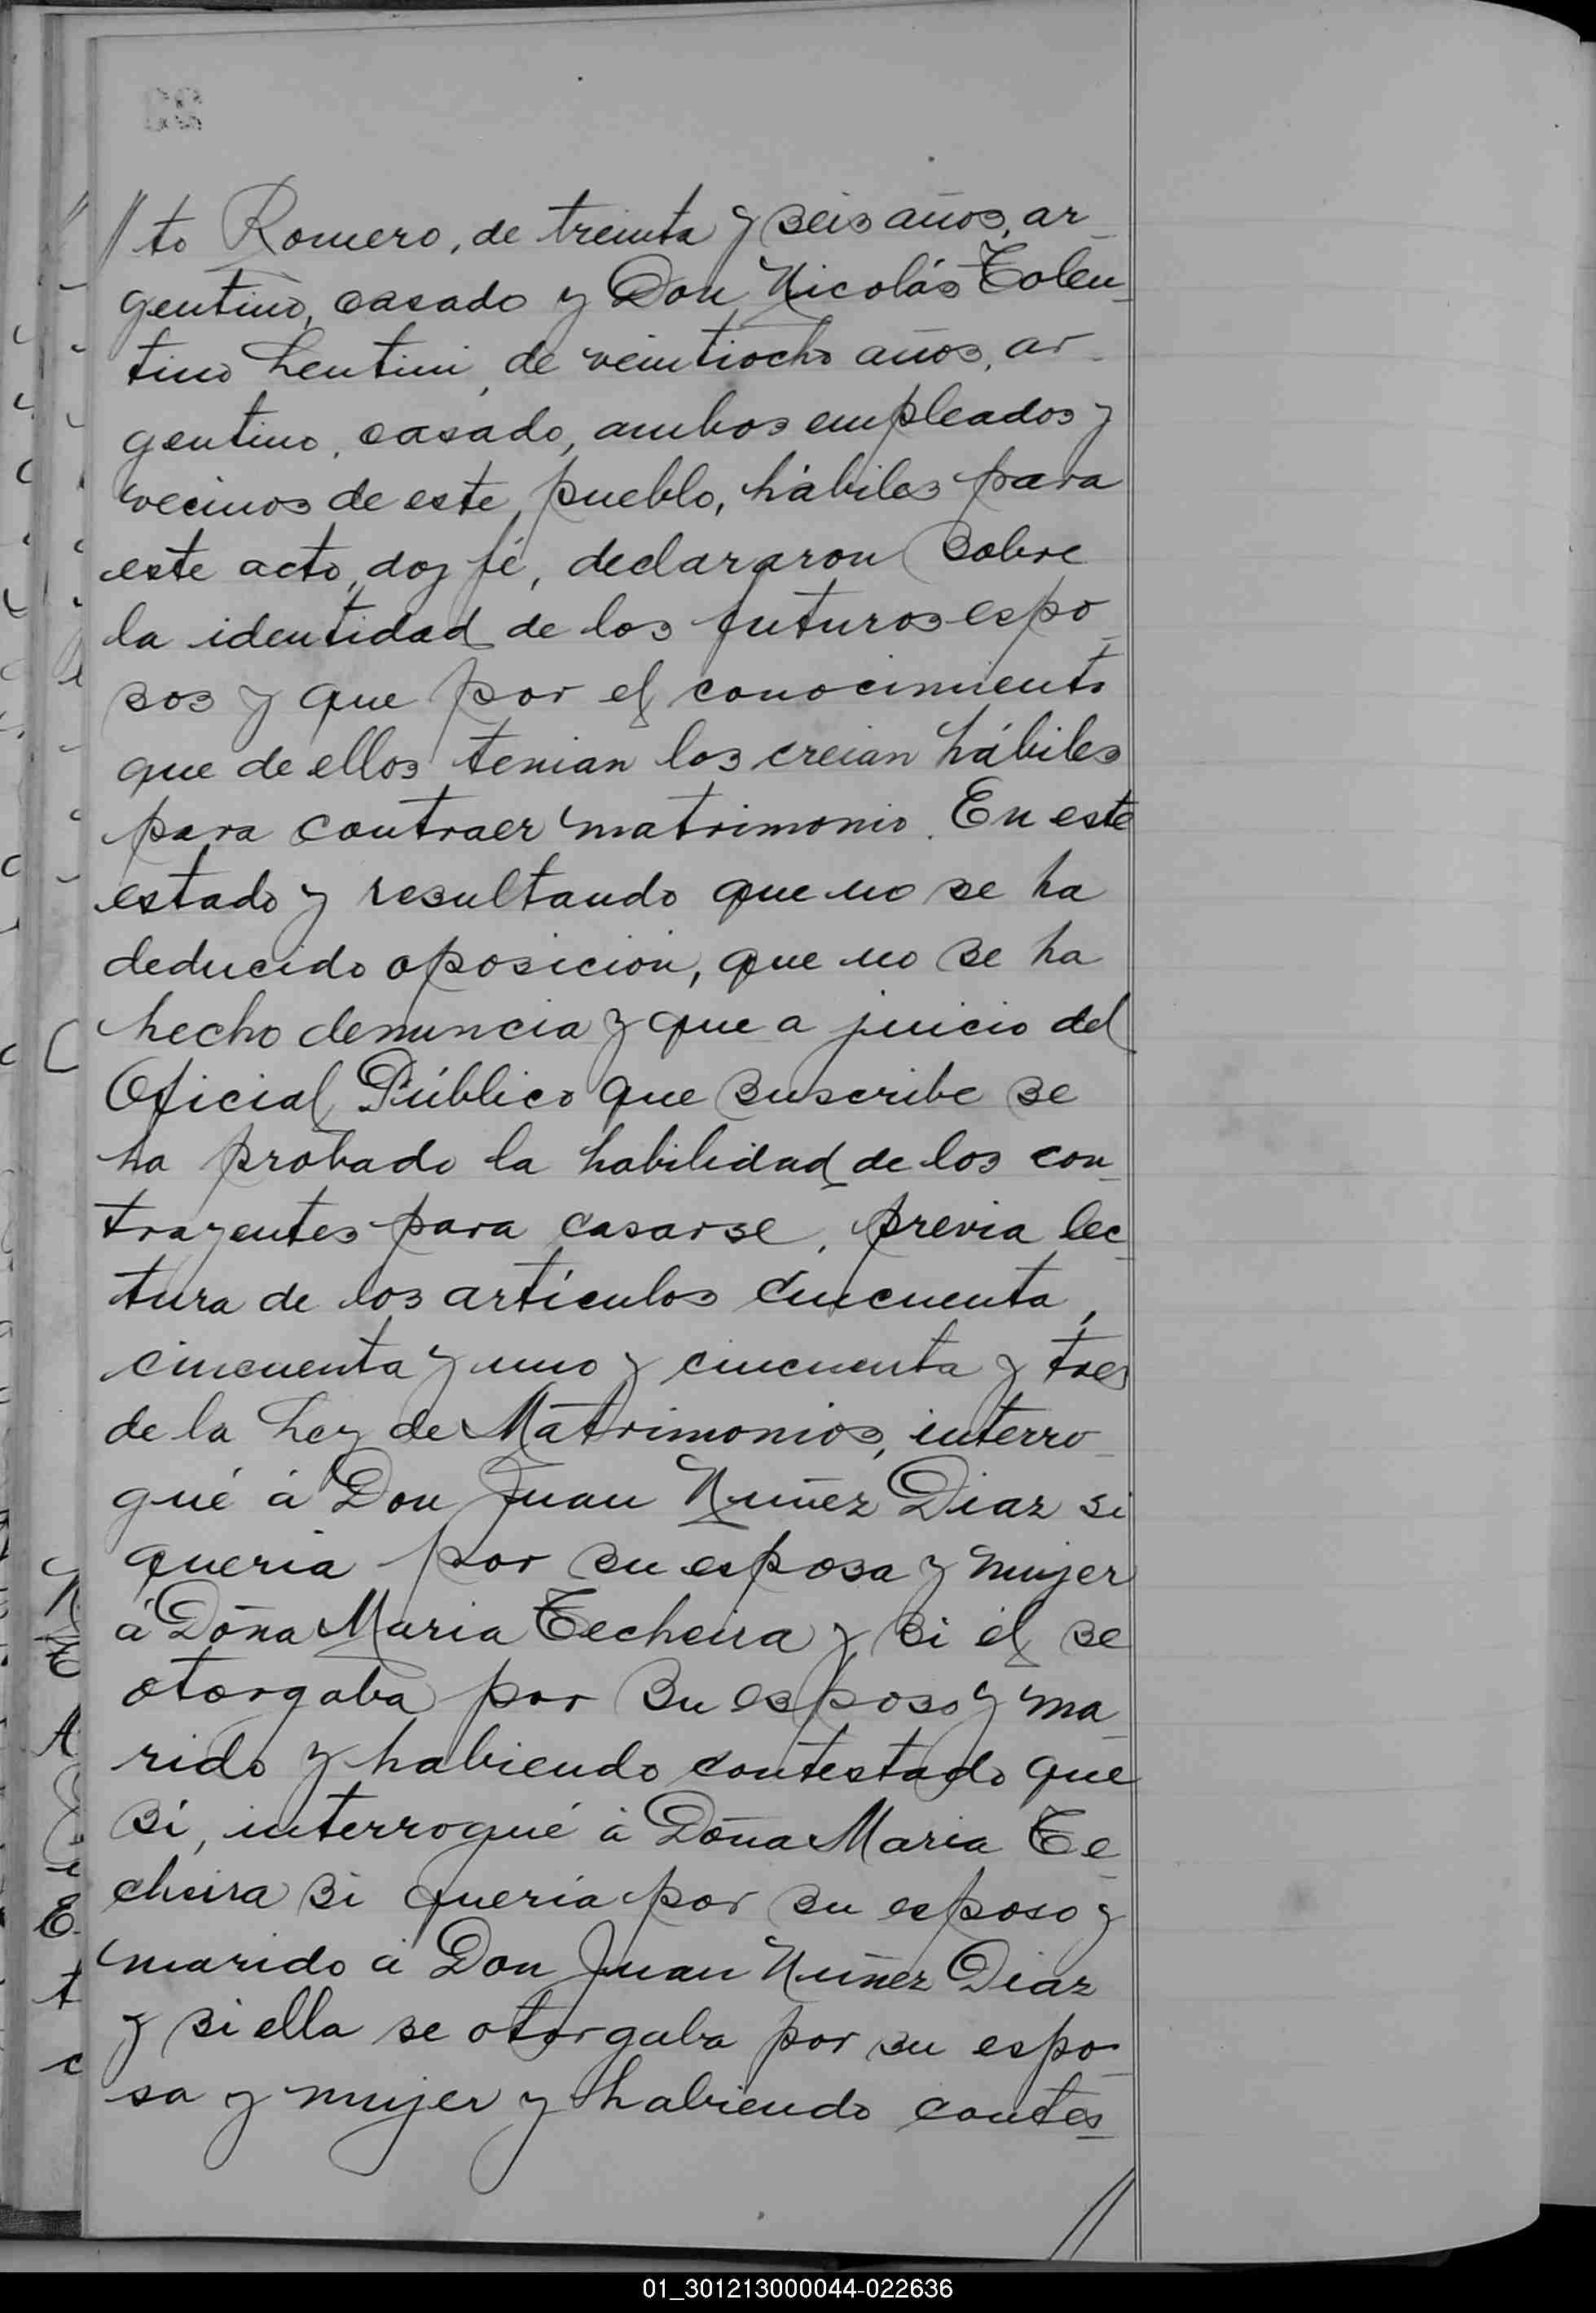 // to Romero, de treinta y seis años, ar-
gentino, casado y Don Nicolás Tolen-
tino Lentini, de veintiocho años, ar-
gentino, casado, ambos empleados y
vecinos de este pueblo, hábiles para
este acto, doy fé, declararon sobre
la identidad de los futuros espo-
sos y que por el conocimiento
que de ellos tenian los creian hábiles
para contraer matrimonio. En este
estado y resultando que no se ha
deducido oposición, que no se ha
hecho denuncia y que a juicio del
Oficial Público que suscribe se
ha probado la habilidad de los con-
trayentes para casarse, previa lec-
tura de los artículos cincuenta,
cincuenta y uno y cincuenta y tres
de la Ley de Matrimonios, interro-
gué á Don Juan Nuñez Diaz si
queria por su esposa y mujer
á Doña Maria Techeira y si él se
otorgaba por su esposo y ma-
rido y habiendo contestado que
sí, interrogué á Doña Maria Te-
cheira si quería por su esposo y
marido á Don Juan Nuñez Diaz
y si ella se otorgaba por su espo-
sa y mujer y habiendo contes-
//
01_301213000044-022636